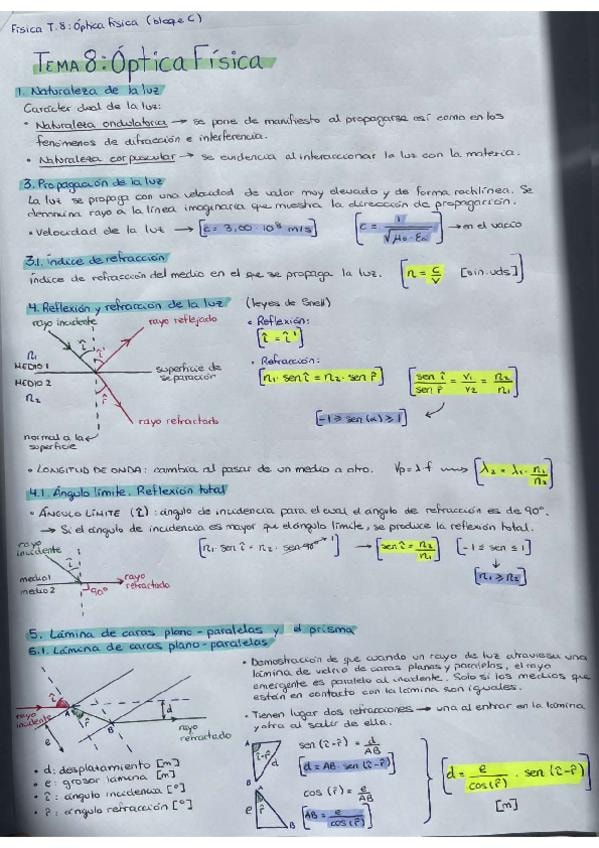 Física T.8: Óptica física (bloque C)
TEMA 8: Óptica Física
1. Naturaleza de la luz
Carácter dual de la luz:
• Naturaleza ondulatoria → se pone de manifiesto al propagarse así como en los
fenómenos de difracción e interferencia.
• Naturaleza corpuscular → se evidencia al interaccionar la luz con la materia.
3. Propagación de la luz
La luz se propaga con una velocidad de valor muy elevado y de forma rectilínea. Se
denomina rayo a la línea imaginaria que muestra la dirección de propagación.
• Velocidad de la luz → [c = 3,00 · 10⁸ m/s] [c = 1/√μ₀·ε₀] → en el vacío
3.1. Índice de refracción
Índice de refracción del medio en el que se propaga la luz. [n = c/v [sin uds]]
4. Reflexión y refracción de la luz (leyes de Snell)
rayo incidente
rayo reflejado
î
î'
n₁
MEDIO 1
MEDIO 2
n₂
superficie de
separación
r̂
rayo refractado
normal a la
superficie
• Reflexión:
[î = î']
• Refracción:
[n₁ · sen î = n₂ · sen r̂] [sen î/sen r̂ = v₁/v₂ = n₂/n₁]
[-1 ≥ sen (α) ≥ 1]
• LONGITUD DE ONDA: cambia al pasar de un medio a otro. Vp = λ·f → [λ₂ = λ₁ · n₁/n₂]
4.1. Ángulo límite. Reflexión total
• ÁNGULO LÍMITE (î): ángulo de incidencia para el cual el ángulo de refracción es de 90°.
→ Si el ángulo de incidencia es mayor que el ángulo límite, se produce la reflexión total.
rayo
incidente
medio 1
medio 2
rayo
refractado
90°
[n₁ · sen î = n₂ · sen 90° 1] → [sen î = n₂/n₁] [-1 ≤ sen ≤ 1]
[n₁ ≥ n₂]
5. Lámina de caras plano-paralelas y el prisma
5.1. Lámina de caras plano-paralelas
î
A
r̂
B
d
e
rayo
incidente
rayo
refractado
• d: desplazamiento [m]
• e: grosor lámina [m]
• î: ángulo incidencia [°]
• r̂: ángulo refracción [°]
• Demostración de que cuando un rayo de luz atraviesa una
lámina de vidrio de caras planas y paralelas, el rayo
emergente es paralelo al incidente. Solo si los medios que
están en contacto con la lámina son iguales.
• Tienen lugar dos refracciones → una al entrar en la lámina
y otra al salir de ella.
A
î-r̂
d
B
sen (î-r̂) = d/AB
[d = AB · sen (î-r̂)]
A
r̂
e
B
cos (r̂) = e/AB
[AB = e/cos(r̂)]
[d = e/cos(r̂) · sen (î-r̂)]
[m]